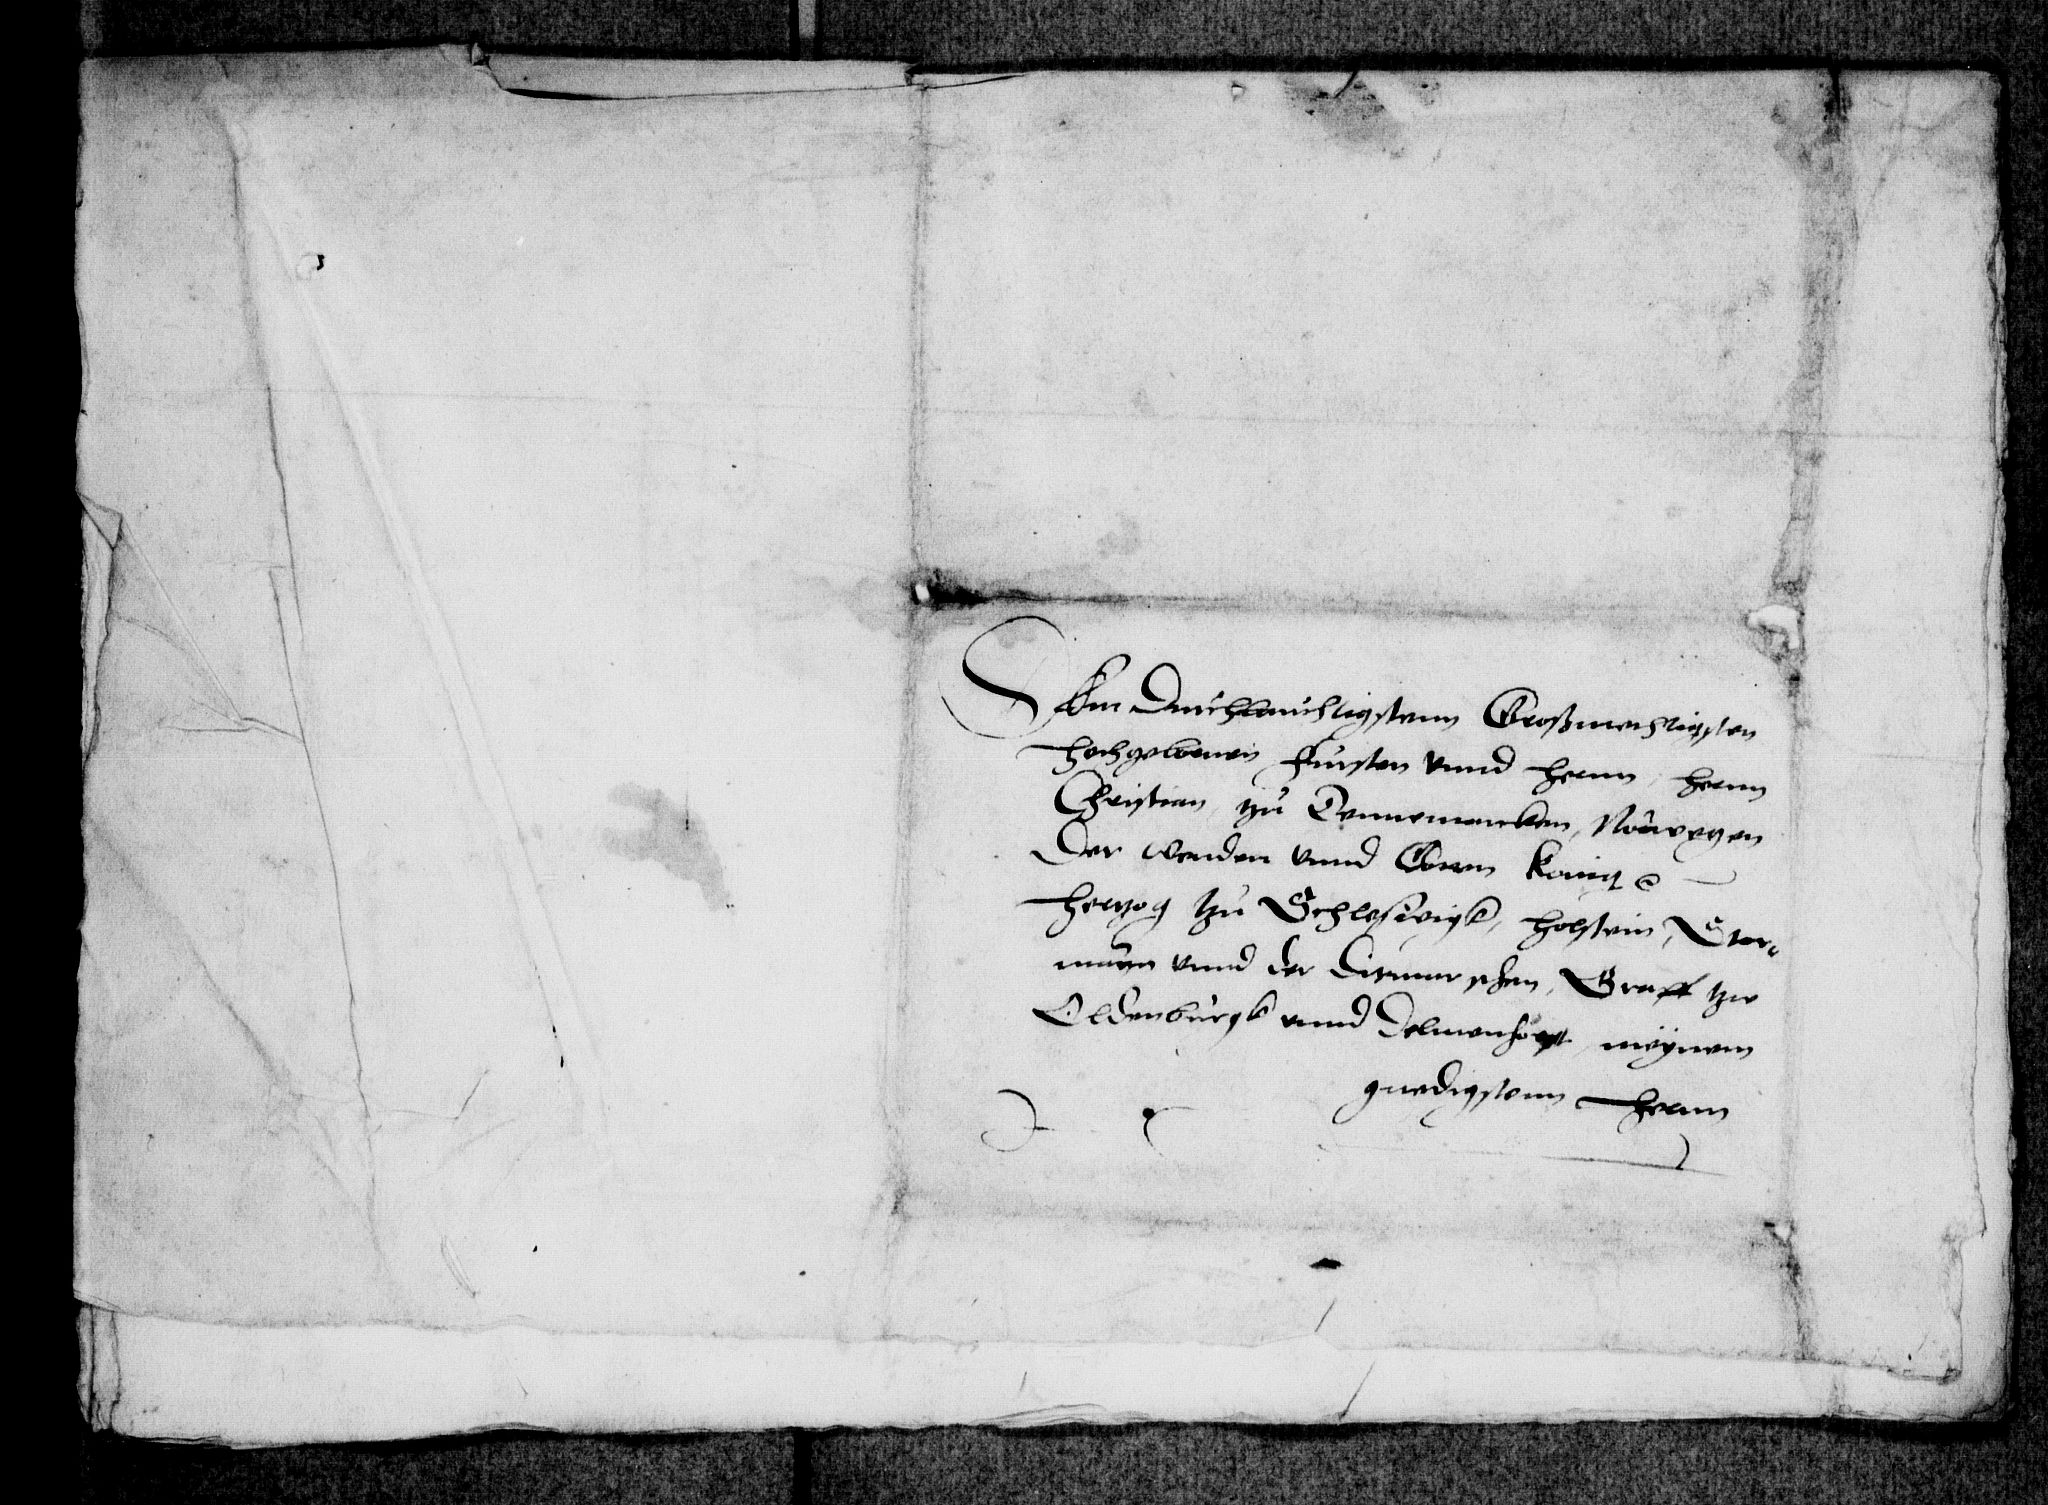 Dem Durchleuchtigstenn Großmechtigsten
hochgebornen Fursten vnnd hernn, hernn
Christian, tzu Dennemarcken, Norwegen
Der Wenden vnnd Gotten Konig
hertzog tzu Schleßwigk, holstein, Stor=
marn vnnd der Ditmarschen, Graff tzw
Oldenburgk vnnd Delmenhorst, meynem
gnedigstenn hernn